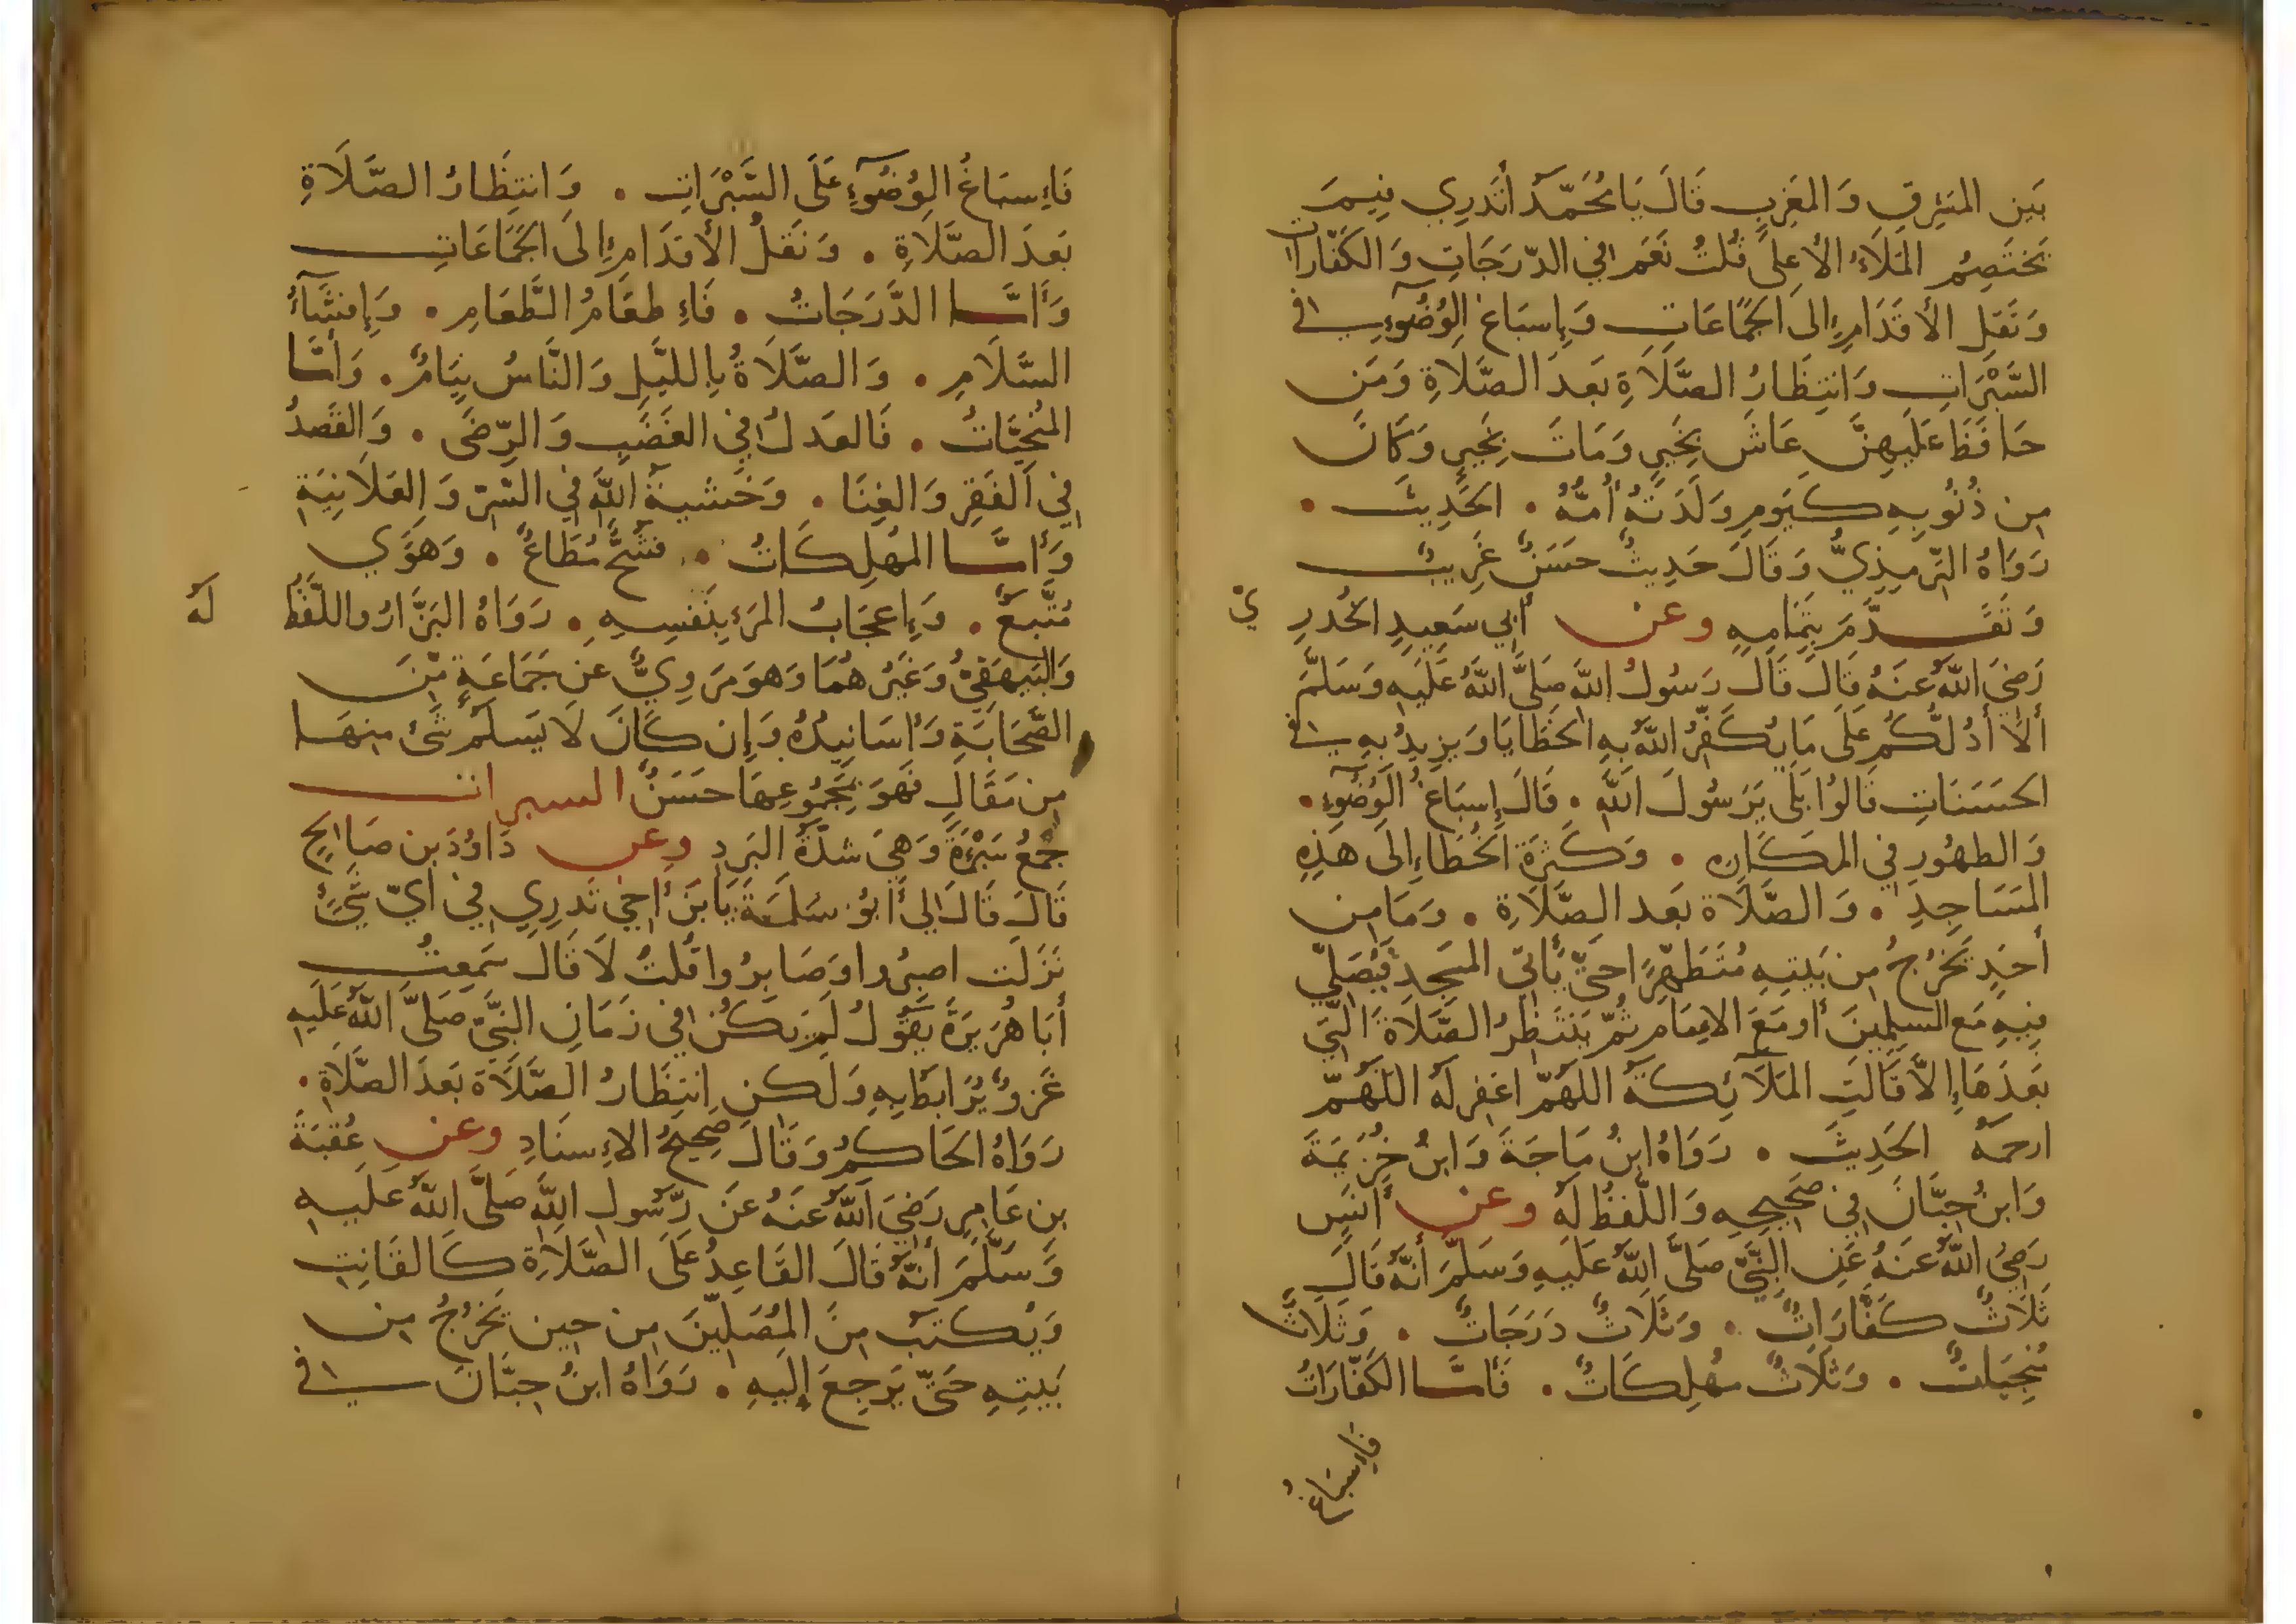 بَين المَشرِقِ وَالمَغرِبِ قَالَ يَا مُحَمَّدُ أتَدرِي فِيمَ
يَختَصِمُ المَلَاءُ الأعلى قُلتُ نَعَم في الدّرَجَاتِ وَالكَفّارات
وَنَقلِ الأقدَامِ إلى الجَمَاعَاتِ وَإسبَاغ الوُضُوءِ في
السَّبْرَاتِ وَانتِظَارُ الصَّلَاةِ بَعدَ الصَّلَاةِ وَمَن
حَافَظَ عَلَيهِنَّ عَاشَ بِخَيرٍ وَمَاتَ بِخَيرٍ وَكَانَ
مِن ذُنُوبِهِ كَيَومِ وَلَدَتهُ أُمُّهُ . الحَدِيثَ .
رَوَاهُ التّرمِذِيُّ وَقَالَ حَدِيثٌ حَسَنٌ غَرِيبٌ
وَتَقَدَّمَ بِتَمَامِهِ وعن أبي سَعِيدِ الخُدرِيّ
رَضِيَ اللهُ عَنهُ قَالَ قَالَ رَسُولُ اللهِ صَلَّى اللهُ عَلَيهِ وَسَلَّمَ
ألَا أدُلُّكُم عَلَى مَا يُكَفِّرُ اللهُ بِهِ الخَطَايَا وَيَزِيدُ بِهِ في
الحَسَنَاتِ قَالُوا بَلَى يَرَسُولَ اللهِ . قَالَ إسبَاغُ الوُضُوءِ .
وَالطهُورِ في المَكَارِه . وَكَثرَةِ الخُطَاءِ إلَى هَذِهِ
المَسَاجِدِ . وَالصَّلَاة بَعد الصَّلَاةِ . وَمَا مِن
أحَدٍ يَخرُجُ مِن بَيتِهِ مُتَطَهِّرًا حَتَّى يَأتِيَ المسجِدِ فَيُصَلِّي
فِيهِ مَع المسلِمِينَ أو مَعَ الامَام ثُمّ يَنتَظِرُ الصَّلَاةَ الّتي
بَعدَهَا إلَّا قَالَتِ المَلَائِكَةُ اللهُمّ اغفِر لَهُ اللهُمّ
ارحَمهُ الحَدِيثَ . رَوَاهُ ابنُ مَاجَةَ وَابنُ خُزَيمَةَ
وَابنُ حِبَّانَ في صَحِيحِهِ وَاللّفظُ لَهُ وعن أنَسٍ
رَضِيَ اللهُ عَنهُ عَنِ النَّبِيّ صَلَّى اللهُ عَلَيهِ وَسَلَّمَ أنَّهُ قَالَ
ثَلَاثٌ كَفَّارَاتٌ . وَثَلَاثٌ دَرَجَاتٌ . وَثَلَاثٌ
مُنجِيَاتٌ . وَثَلَاثٌ مُهلِكَاتٌ . فَأمَّا الكَفَّارَاتُ
فَإسبَاغُ
فَإسبَاغُ الوُضُوءِ عَلَى السَّبْرَاتِ . وَانتِظَارُ الصَّلَاةِ
بَعدَ الصَّلَاةِ . وَنَقلُ الأقدَامِ إلَى الجَمَاعَاتِ
وَأمَّا الدَّرَجَاتُ . فَإطعَامُ الطَّعَامِ . وَإفشَاءُ
السَّلَامِ . وَالصَّلَاةُ بِاللَّيلِ وَالنَّاسُ نِيَامٌ . وَأمَّا
المُنجِيَاتُ . فَالعَدلُ في الغَضَبِ وَالرِّضَى . وَالقَصدُ
في الفَقرِ وَالغِنَا . وَخَشيَةُ اللهِ في السِّرّ وَالعَلَانِيَةِ
وَأمَّا المُهلِكَاتُ . فَشُحٌّ مُطَاعٌ . وَهَوًى
مُتَّبَعٌ . وَإعجَابُ المَرءِ بِنَفسِهِ . رَوَاهُ البَزَّارُ واللَّفظُ لَهُ
وَالبَيهَقِيُّ وَغَيرُ هُمَا وَهوَ مَروِيٌّ عَن جَمَاعَةٍ مّنَ
الصَّحَابَةِ وَأسَانِيدُهُ وَإن كَانَ لَا يَسلَمُ شَئ مِنهَا
مِن مَقَالٍ فَهوَ بِمَجمُوعِهَا حَسَنٌ السبرات
جَمعُ سَبْرَةٍ وَهِيَ شدَّةُ البَردِ وعن دَاوُدَ بن صَالِحٍ
قَالَ قَالَ لي أبُو سَلَمَةَ يَا بنَ أخِي تَدرِي في أيّ شَيءٍ
نَزَلَت اصبِرُوا وَصَابِرُوا قُلتُ لَا قَالَ سَمِعتُ
أبَا هُرَيرَةَ يَقُولُ لَم يَكُن في زَمَانِ النَّبيّ صَلَّى اللهُ عَلَيهِ
غَزوٌ يُرَابَطُ بِهِ وَلَكِنِ انتِظَارُ الصَّلَاة بَعدَ الصَّلَاةِ .
رَوَاهُ الحَاكِمُ وَقَالَ صَحِيحُ الإسنَادِ وعن عُقبَةَ
بنِ عَامِرٍ رَضِيَ اللهُ عَنهُ عَن رّسُولِ اللهِ صَلَّى اللهُ عَلَيهِ
وَسَلَّمَ أنَّهُ قَالَ القَاعِدُ عَلَى الصَّلَاةِ كَالقَانِتِ
وَيُكتَبُ مِنَ المُصَلِّينَ مِن حِينِ يَخرُجُ مِن
بَيتِهِ حَتَّى يَرجِعَ إلَيهِ . رَوَاهُ ابنُ حِبَّانَ في